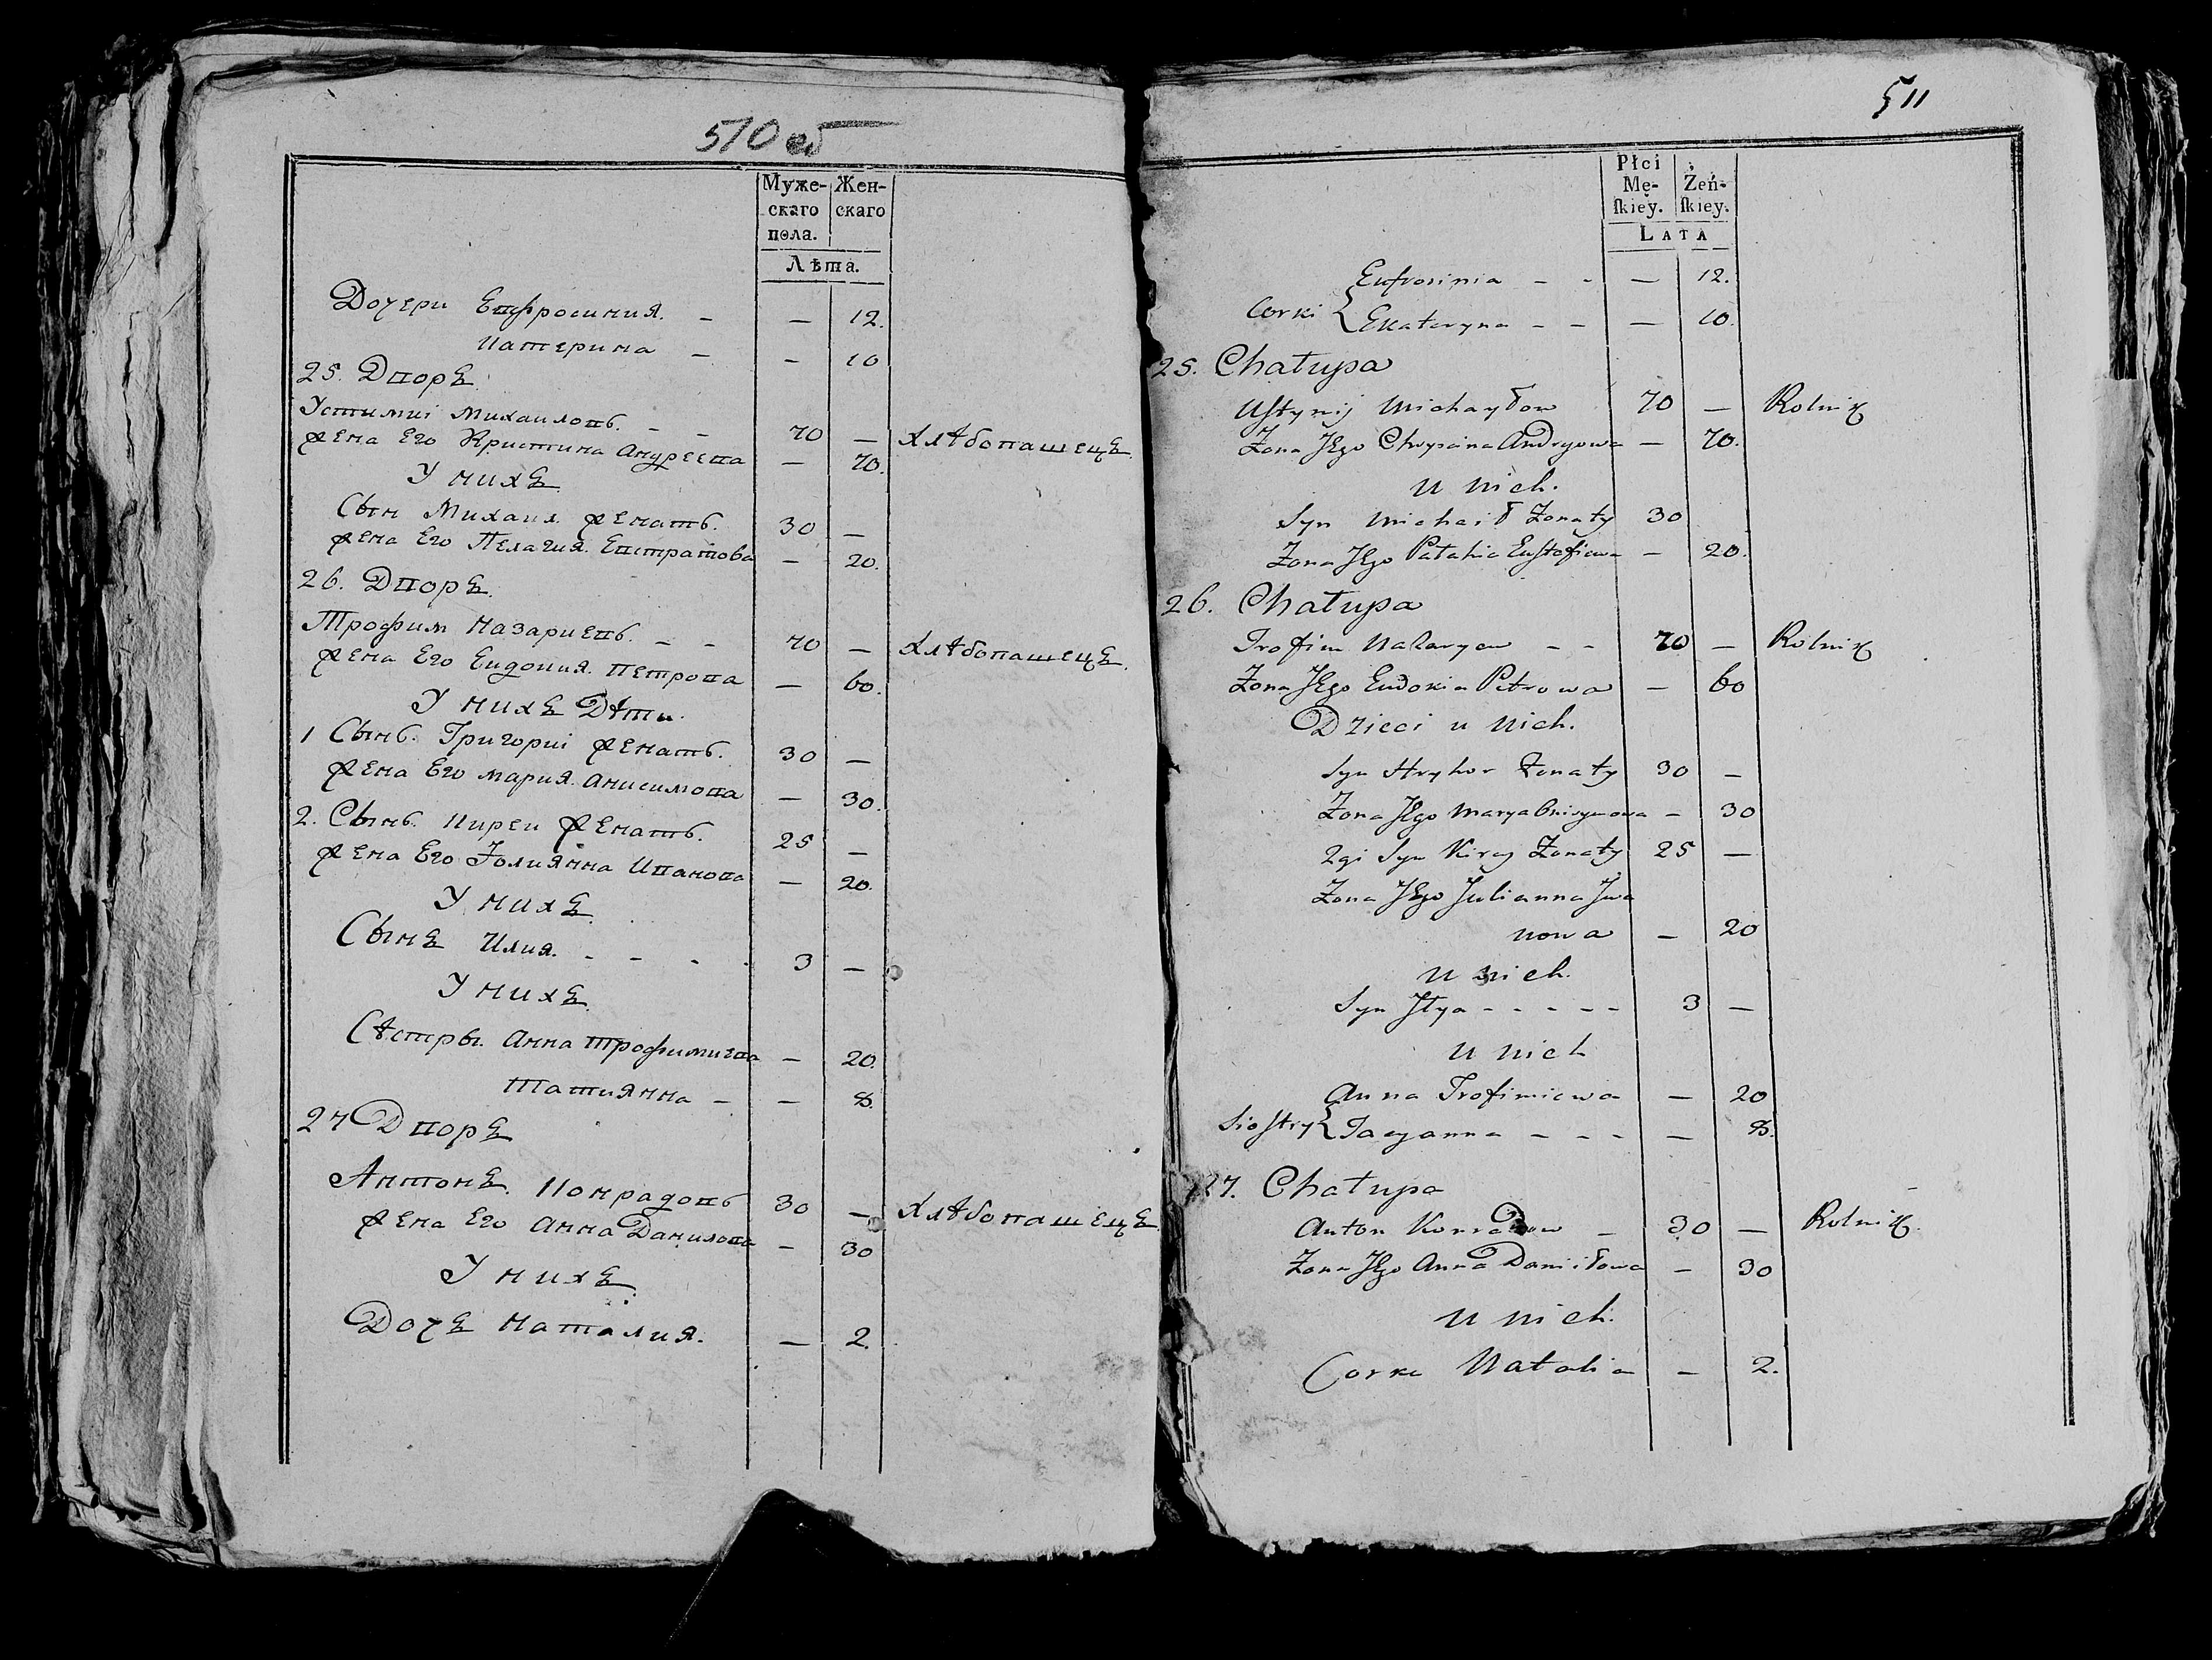 510 об
Муже- Жен-
скаго скаго
пола.
Лѣта.
Дочери Евфросиния. - — 12.
Катерина - - 10
25. Дворъ
Устимиі Михаиловъ. - - 70 — Хлѣбопашецъ.
Жена Его Кристина Андреева — 70.
У нихъ
Сын Михаил Женатъ. 30 —
Жена Его Пелагия Евстратова — 20.
26. Дворъ.
Трофим Назариевъ. - - 70 — Хлѣбопашецъ.
Жена Его Евдокия Петрова — 60.
У нихъ Дѣти.
1 Сынъ. Григориі Женатъ. 30 —
Жена Его Мария Анисимова — 30.
2. Сынъ. Киреи Женатъ. 25 —
Жена Его Юлиянна Иванова — 20.
У нихъ
Сынъ Илия. - - - - 3 —
У нихъ
Сѣстры. Анна Трофимиева — 20.
Татиянна - — 8.
27 Дворъ
Антонъ. Конрадовъ 30 — Хлѣбопашецъ
Жена Его Анна Данилова — 30
У нихъ
Дочъ Наталия. — 2.
511
Płci
Mę- Żeń-
ſkiey. ſkiey.
LATA
Eufrosinia - - — 12.
Corki { Ekateryna - - — 10.
25. Chałupa
Uſtynij Michayłow 70 — Rolnik
Żona Jego Chrysina Andrejowa — 70.
u nich.
Syn Michaił Żonaty 30
Żona Jego Pałahia Euſtafiewa — 20.
26. Chałupa
Trofim Nazaryew - - 70 — Rolnik
Żona Jego Eudokia Petrowa — 60
Dzieci u nich.
Syn Hryhor Żonaty 30 —
Żona Jego Marya Onisymowa — 30
2gi Syn Kirey Żonaty 25 —
Żona Jego Julianna Jwa
nowa — 20
u nich.
Syn Jlya - - - - - 3 —
u nich
Anna Trofimiewa — 20
Sioſtry { Tacyanna - - - — 8.
27. Chałupa
Anton Konradow - 30 — Rolnik.
Żona Jego Anna Daniłowa — 30
u nich.
Corka Natalia — 2.